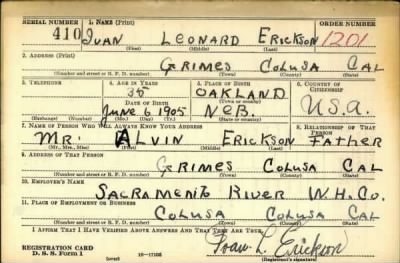 SERIAL NUMBER 1. NAME (Print) ORDER NUMBER
410 IVAN LEONARD ERICKSON 1201
(First) (Middle) (Last)
2. ADDRESS (Print)
GRIMES COLUSA CAL
(Number and street or R. F. D. number) (Town) (County) (State)
3. TELEPHONE 4. AGE IN YEARS 5. PLACE OF BIRTH 6. COUNTRY OF CITIZENSHIP
35 OAKLAND
DATE OF BIRTH (Town or county)
June 6, 1905 NEB. U.S.A.
(Exchange) (Number) (Mo.) (Day) (Yr.) (State or country)
7. NAME OF PERSON WHO WILL ALWAYS KNOW YOUR ADDRESS 8. RELATIONSHIP OF THAT PERSON
MR ALVIN ERICKSON FATHER
(Mr., Mrs., Miss) (First) (Middle) (Last)
9. ADDRESS OF THAT PERSON
GRIMES COLUSA CAL
(Number and street or R. F. D. number) (Town) (County) (State)
10. EMPLOYER'S NAME
SACRAMENTO RIVER W.H.CO.
11. PLACE OF EMPLOYMENT OR BUSINESS
COLUSA COLUSA CAL
(Number and street or R. F. D. number) (Town) (County) (State)
I AFFIRM THAT I HAVE VERIFIED ABOVE ANSWERS AND THAT THEY ARE TRUE.
REGISTRATION CARD
D. S. S. Form 1 Ivan L. Erickson
(Registrant's signature)